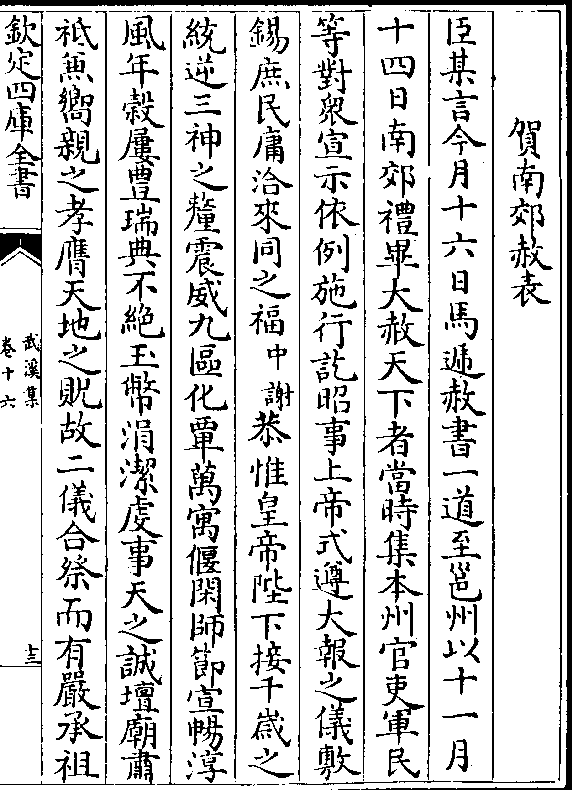 賀南郊赦表
臣某言今月十六日馬遞赦書一道至邕州以十一月
十四日南郊禮畢大赦天下者當時集本州官吏軍民
等對衆宣示依例施行訖昭事上帝式遵大報之儀敷
錫庶民庸洽來同之福中謝恭惟皇帝陛下接千嵗之
統逆三神之釐震威九區化覃萬寓偃閑師節宣暢淳
風年榖屢豐瑞典不絶玉幣涓潔虔事天之誠壇廟肅
祗兼嚮親之孝膺天地之貺故二儀合祭而有嚴承祖
欽定四庫全書
武溪集
卷十六
十三